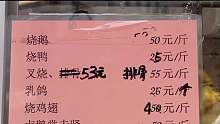 烧鹅 50元/斤
烧鸭 25元/斤
叉烧、53元 排骨 55元/斤
乳鸽 25元/个
烧鸡翅 450元/斤